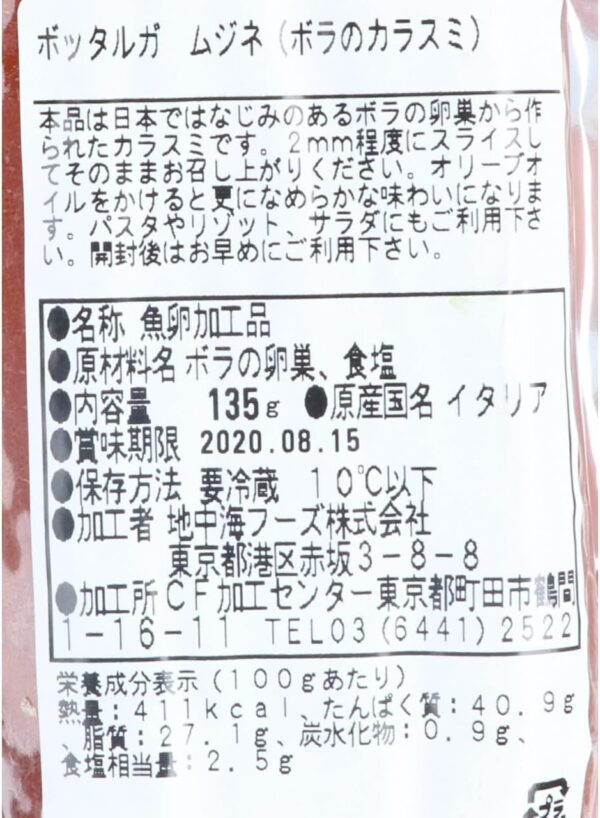 ボッタルガ ムジネ（ボラのカラスミ）
本品は日本ではなじみのあるボラの卵巣から作
られたカラスミです。2mm程度にスライスし
てそのままお召し上がりください。オリーブオ
イルをかけると更になめらかな味わいになりま
す。パスタやリゾット、サラダにもご利用下さ
い。開封後はお早めにご利用下さい。
●名称 魚卵加工品
●原材料名 ボラの卵巣、食塩
●内容量 135g ●原産国名 イタリア
●賞味期限 2020.08.15
●保存方法 要冷蔵 10℃以下
●加工者 地中海フーズ株式会社
東京都港区赤坂3-8-8
●加工所 CF加工センター東京都町田市鶴間
1-16-11 TEL03(6441)2522
栄養成分表示(100gあたり)
熱量:411kcal、たんぱく質:40.9g
、脂質:27.1g、炭水化物:0.9g、
食塩相当量:2.5g
プラ